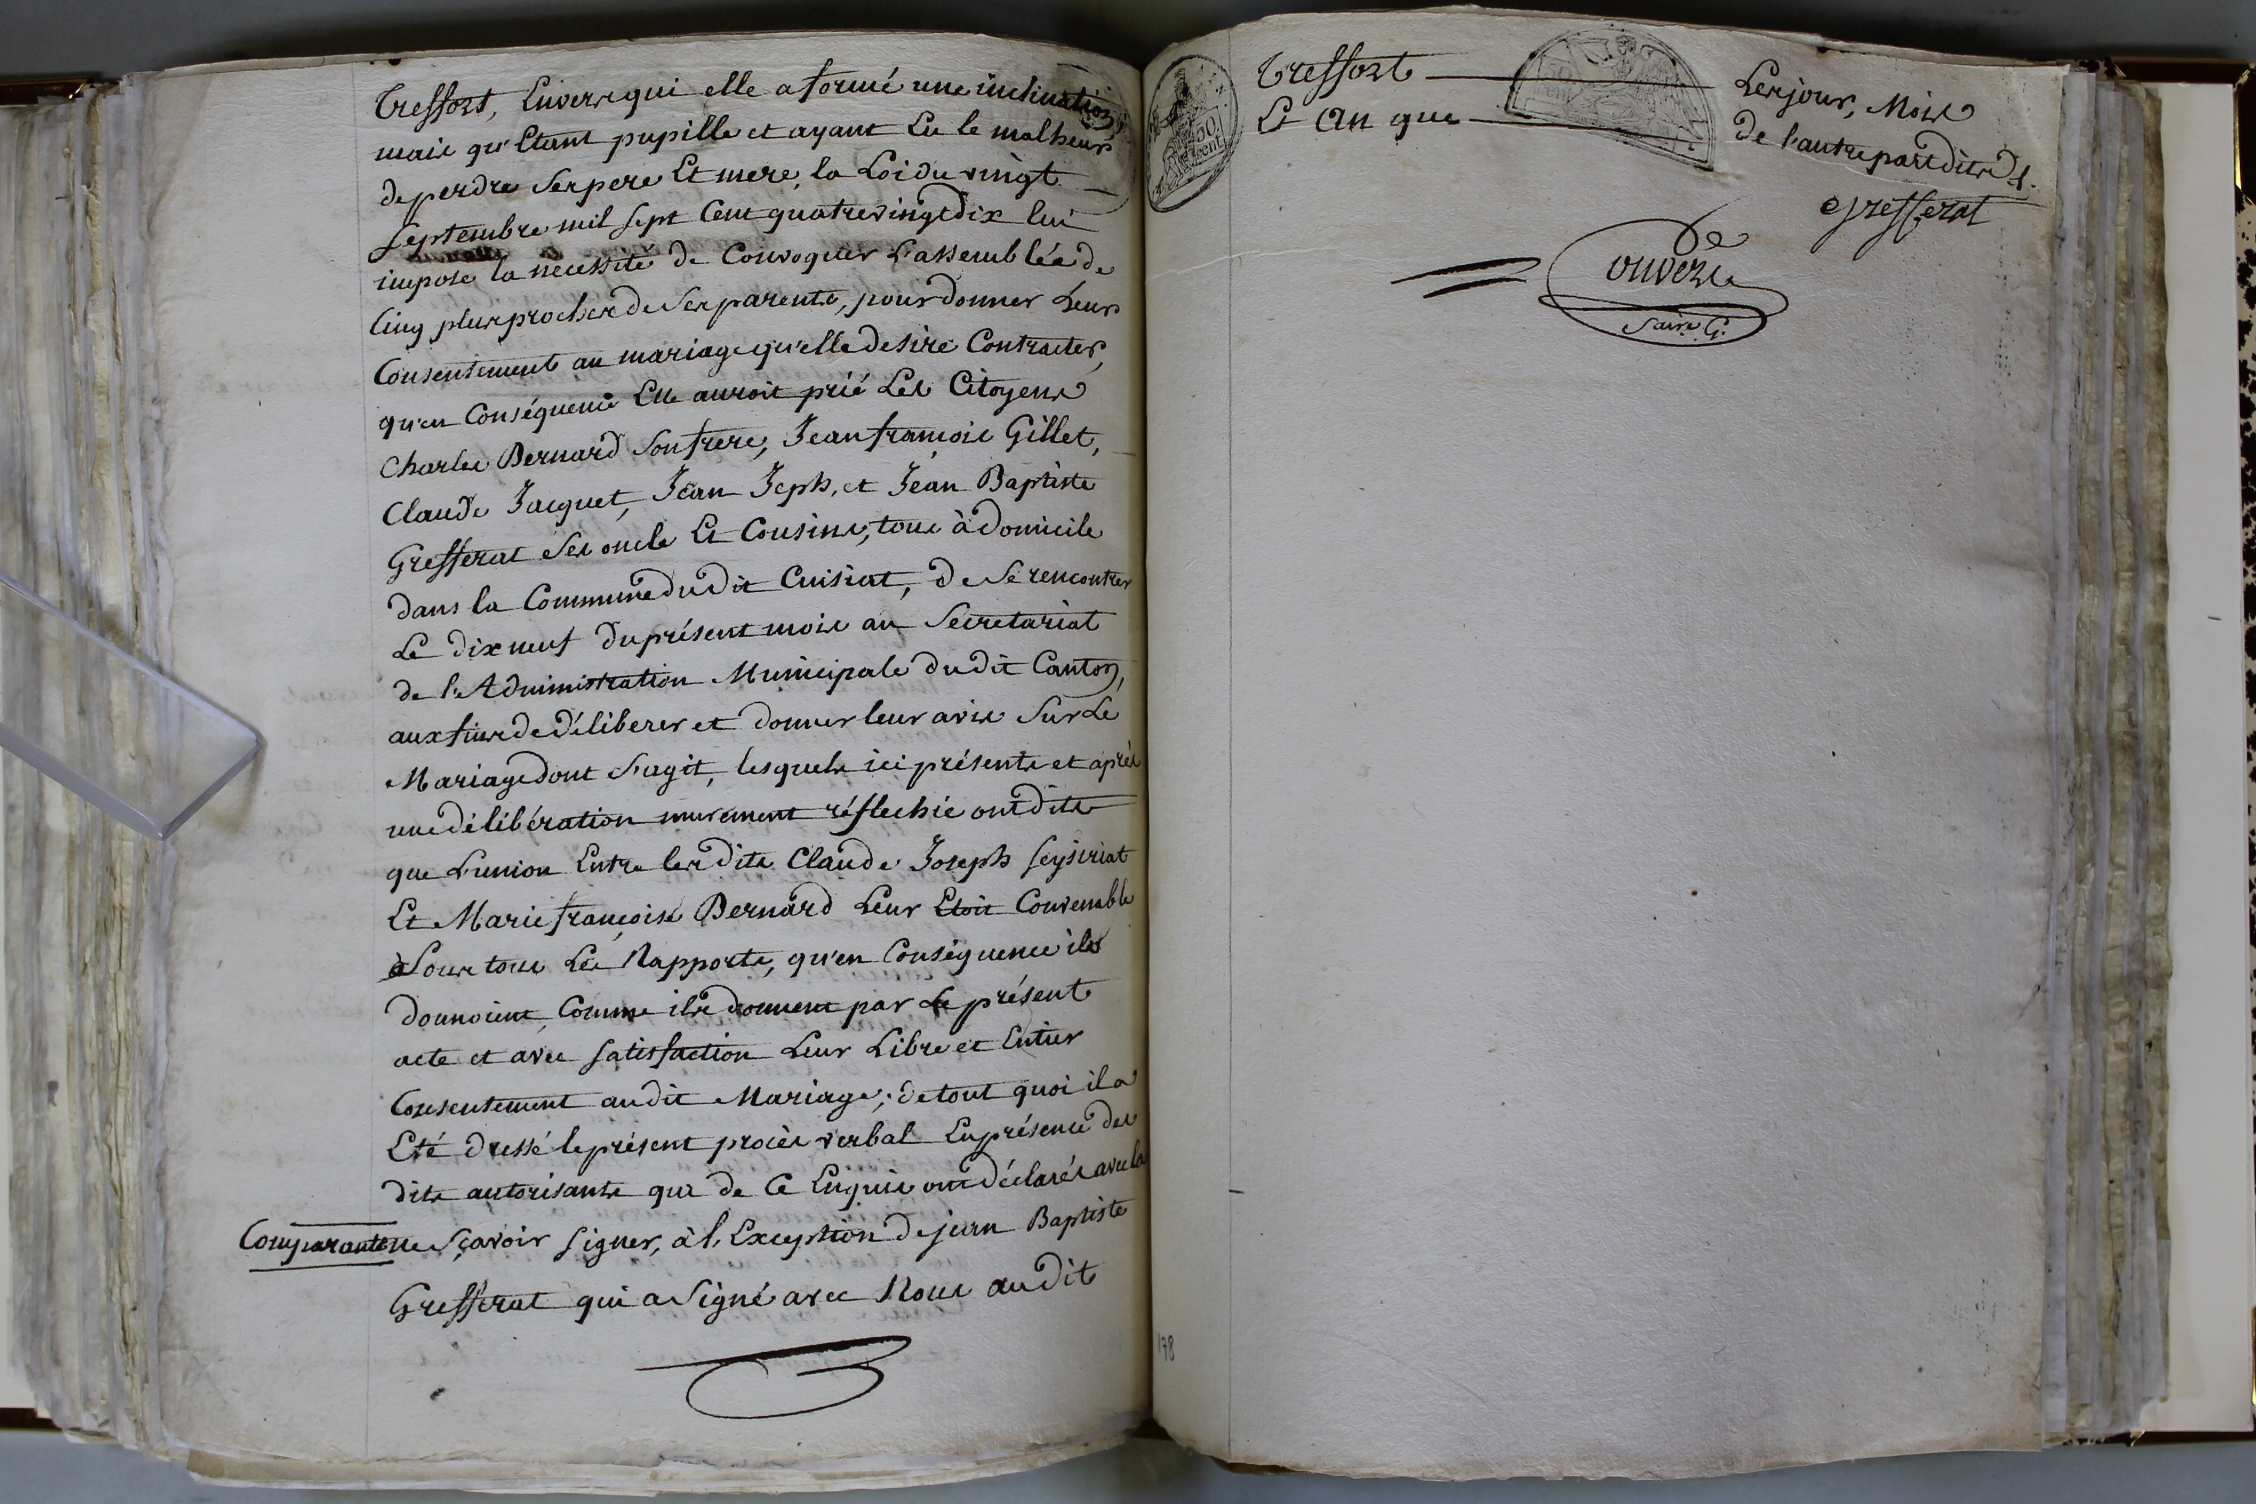 Treffort, Envers qui elle a formé une inclination,
mais qu'Etant pupille et ayant Eu le malheur
de perdre Ses pere Et mere, la Loi du vingt
Septembre mil Sept Cent quatrevingt dix lui
impose la necessité de Convoquer L'assemblée de
Cinq plus proches de Ses parents, pour donner Leurs
Consentement au mariage qu'elle desire Contracter,
qu'en Conséquence Elle auroit prié Les Citoyens
Charles Bernard Son frere, Jean françois Gillet,
Claude Jacquet, Jean Jeph, et Jean Baptiste
Grefferat Ses oncle Et Cousins, tous à domicile
dans la Commune du dit Cuisiat, de Se rencontrer
Le dix neuf du présent mois au Secretariat
de l'Administration Municipale du dit Canton,
aux fins de déliberer et donner leur avis Sur Le
Mariage dont S'agit, lesquels ici présents et après
une délibération murement réflechie ont dits
que L'union Entre les dits Claude Joseph Seysiriat
Et Marie françoise Bernard Leur Etoit Convenable
Sous tous Les Rapports, qu'en Conséquence ils
donnoient, Comme ils donnent par Le présent
acte et avec Satisfaction Leur Libre et Entier
Consentement au dit Mariage; de tout quoi il a
Eté dressé le présent procès verbal En présence des
dits autorisants qui de Ce Enquis ont déclarés avec la
Comparante ne Sçavoir Signer, à l'Exception de jean Baptiste
Grefferat qui a Signé avec Nous au dit
Treffort Les jour, Mois
Et An que de l'autre part dits
Grefferat
50 cent
178